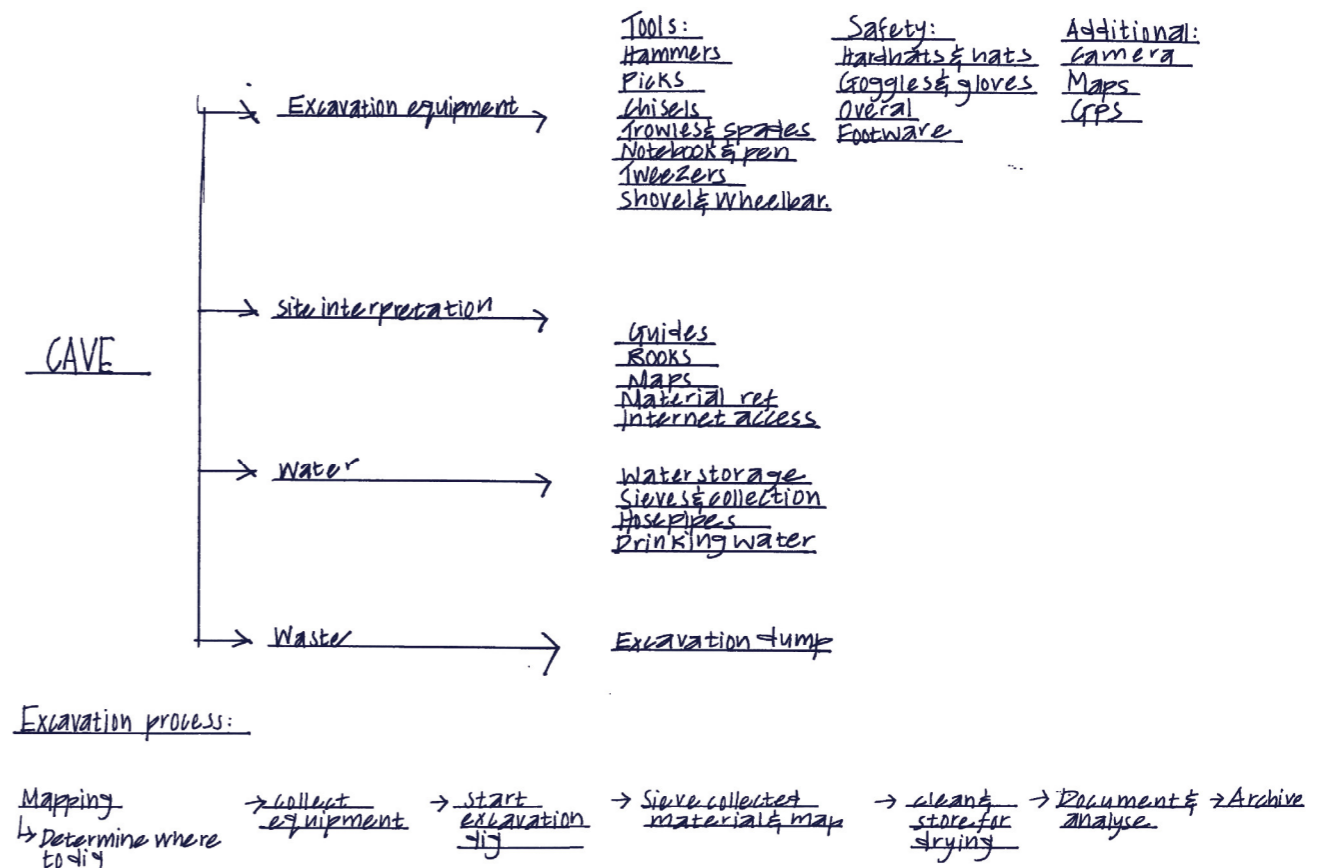 Tools:
Hammers
Picks
Chisels
Trowles & spades
Notebook & pen
Tweezers
Shovel & Wheelbar.
Safety:
Hardhats & hats
Goggles & gloves
Overal
Footware
Additional:
Camera
Maps
GPS
Excavation equipment
CAVE
Site interpretation
Guides
Books
Maps
Material ref
Internet access
Water
Water storage
Sieves & collection
Hosepipes
Drinking water
Waste
Excavation dump
Excavation process:
Mapping
↳ Determine where
to dig
→ collect
equipment
→ start
excavation
dig
→ Sieve collected
material & map
→ clean &
store for
drying
→ Document &
analyse
→ Archive